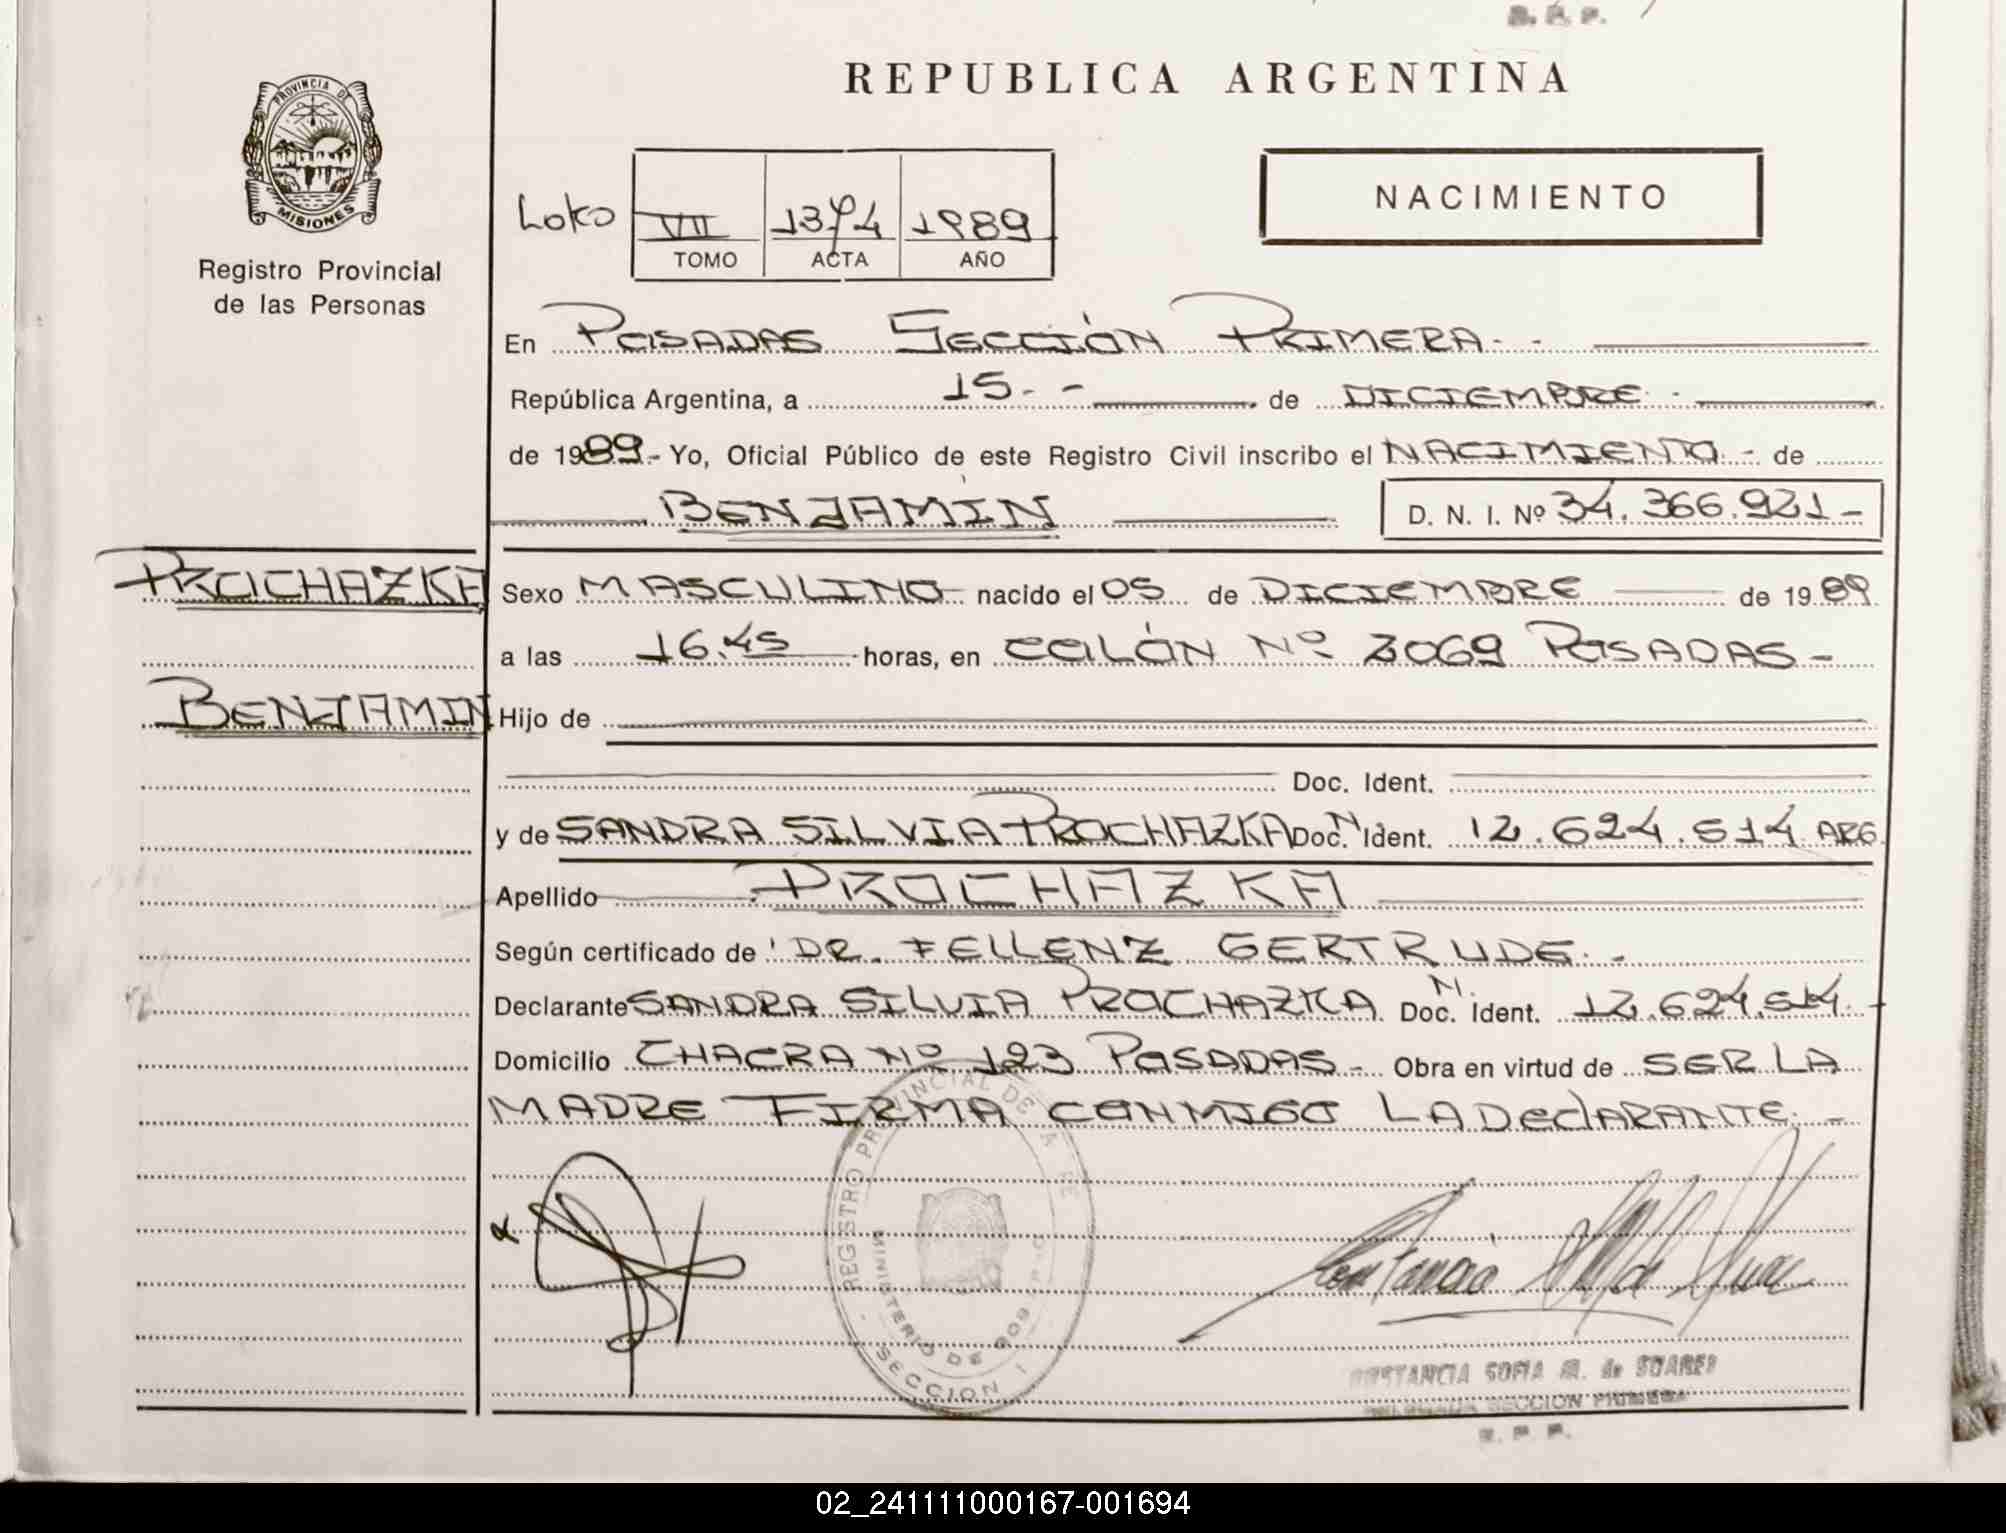 B. P. P.
REPUBLICA ARGENTINA
PROVINCIA DE
MISIONES
Registro Provincial
de las Personas
NACIMIENTO
Loko VII 1374 1989
TOMO ACTA AÑO
En POSADAS SECCIÓN PRIMERA.-
República Argentina, a 15.- - de DICIEMBRE.-
de 1989.- Yo, Oficial Público de este Registro Civil inscribo el NACIMIENTO.- de
BENJAMÍN D. N. I. Nº 34.366.921-
PROCHAZKA
BENJAMIN
Sexo MASCULINO nacido el 05 de DICIEMBRE de 1989
a las 16.45 horas, en COLÓN Nº 3069 POSADAS-
Hijo de
Doc. Ident.
y de SANDRA SILVIA PROCHAZKA Doc. N Ident. 12.624.514 ARG
Apellido PROCHAZKA
Según certificado de DR. FELLENZ GERTRUDE.-
Declarante SANDRA SILVIA PROCHAZKA Doc. N. Ident. 12.624.514.-
Domicilio CHACRA Nº 123 POSADAS- Obra en virtud de SER LA
MADRE FIRMA CONMIGO LA DEclARANTE.-
REGISTRO PROVINCIAL DE
MINISTERIO DE GOB
SECCION I
CONSTANCIA SOFIA M. de SUAREZ
SECCION PRIMERA
R. P. P.
02_241111000167-001694